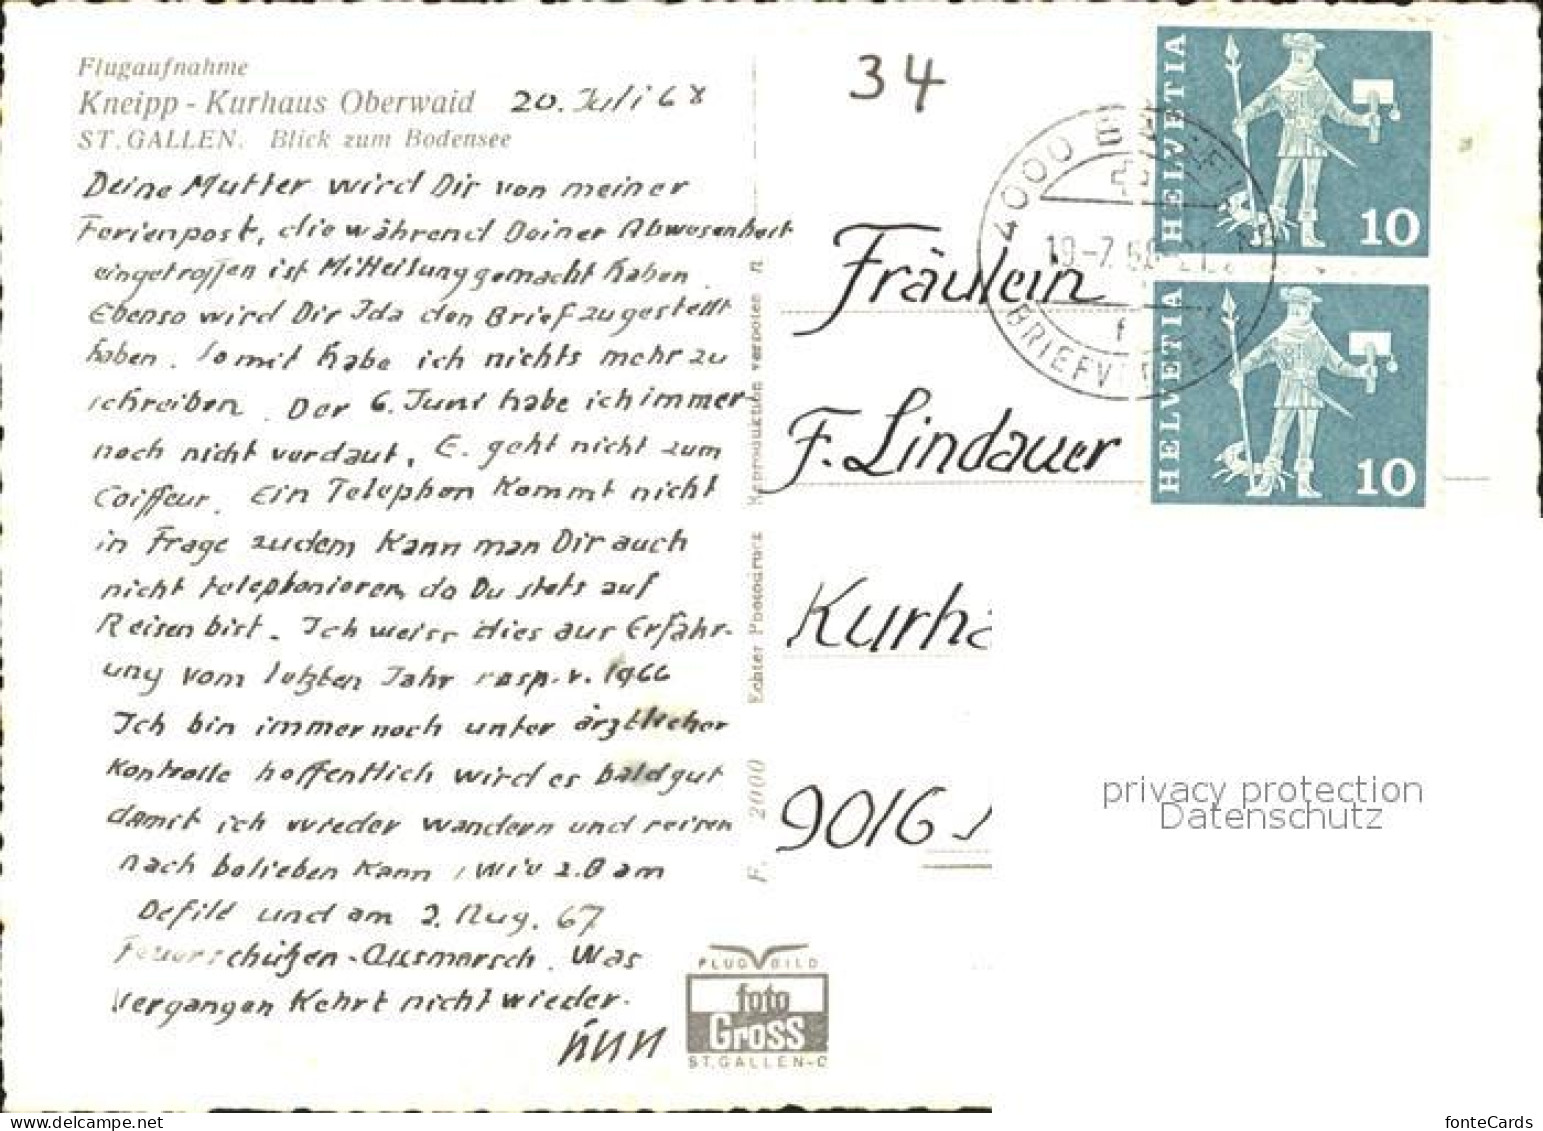 Flugaufnahme
Kneipp - Kurhaus Oberwaid 20. Juli 68
ST. GALLEN. Blick zum Bodensee
Deine Mutter wird Dir von meiner
Ferienpost, die während Deiner Abwesenheit
eingetroffen ist Mitteilung gemacht haben
Ebenso wird Dir Ida den Brief zugestellt
haben. Somit habe ich nichts mehr zu
schreiben. Der 6. Juni habe ich immer
noch nicht verdaut, E. geht nicht zum
Coiffeur. Ein Telephon kommt nicht
in Frage zudem kann man Dir auch
nicht telephonieren, da Du stets auf
Reisen bist. Ich weiss dies aus Erfahr-
ung vom letzten Jahr resp. v. 1966
Ich bin immer noch unter ärztlicher
Kontrolle hoffentlich wird es bald gut
damit ich wieder wandern und reisen
nach belieben kann, wie z.B am
Defilé und am 2. Aug. 67
Feuerschützen-Ausmarsch. Was
vergangen kehrt nicht wieder.
F. 2000 Echter Photodruck Reproduktion verboten
FLUG BILD
foto
Gross
ST. GALLEN-C
34
HELVETIA
10
HELVETIA
10
4000
BRIEFV
f
Fräulein
F. Lindauer
Kurha
9016
privacy protection
Datenschutz
fonteCards